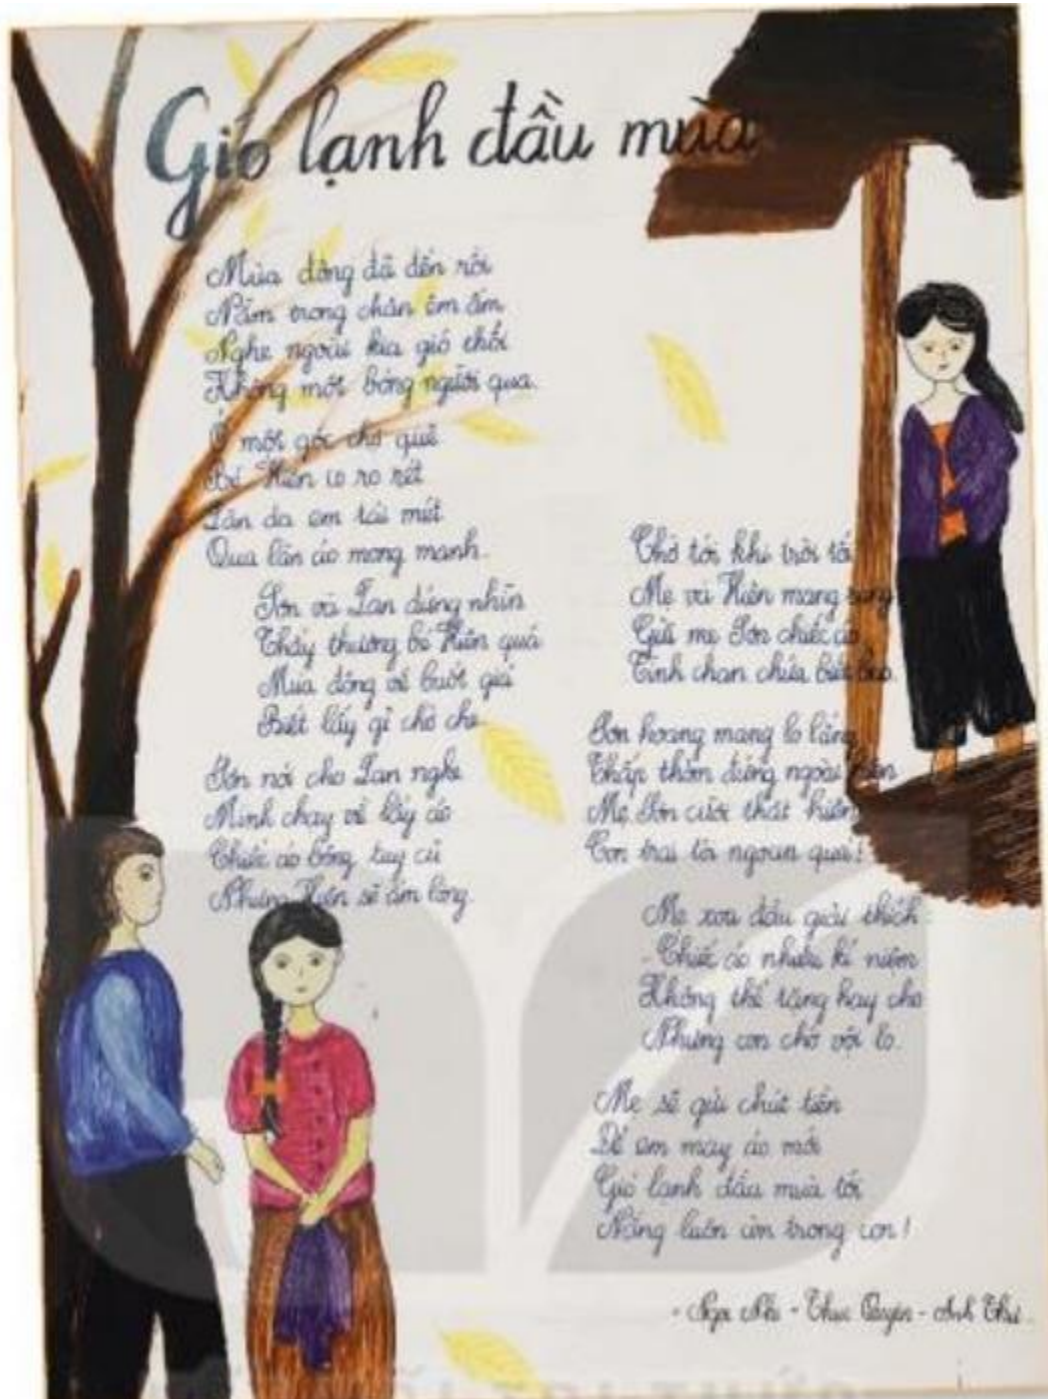 Gió lạnh đầu mùa
Mùa đông đã đến rồi
Nằm trong chăn êm ấm
Nghe ngoài kia gió thổi
Không một bóng người qua.
Ở một góc chợ quê
Bé Hiên co ro rét
Làn da em tái mét
Qua làn áo mong manh.
Sơn và Lan đứng nhìn
Thấy thương bé Hiên quá
Mùa đông về buốt giá
Biết lấy gì chở che
Sơn nói cho Lan nghe
Mình chạy về lấy áo
Chiếc áo bông tuy cũ
Nhưng Hiên sẽ ấm lòng.
Chờ tới khi trời tối
Mẹ và Hiên mang sang
Gửi mẹ Sơn chiếc áo
Tình chan chứa biết bao.
Sơn hoang mang lo lắng
Thấp thỏm đứng ngoài hiên
Mẹ Sơn cười thật hiền
Con trai tôi ngoan quá!
Mẹ xoa đầu giải thích:
- Chiếc áo nhiều kỉ niệm
Không thể tặng hay cho
Nhưng con chớ vội lo.
Mẹ sẽ gửi chút tiền
Để em may áo mới
Gió lạnh đầu mùa tới
Nắng luôn ấm trong con!
- Nhi - Thục Quyên - Anh Thư